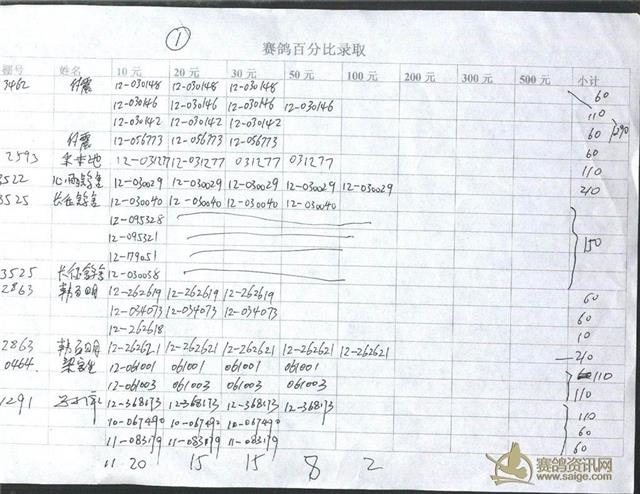 ①
赛鸽百分比录取
棚号 姓名 10 元 20 元 30 元 50 元 100 元 200 元 300 元 500 元 小计
3462 付震 12-030148 12-030148 12-030148 60
12-030146 12-030146 12-030146 12-030146 110
12-030142 12-030142 12-030142 60
付震 12-056773 12-056773 12-056773 60
2593 12-031277 12-031277 031277 031277 110
3522 12-030029 12-030029 12-030029 12-030029 12-030029 210
3525 长征鸽舍 12-030040 12-030040 12-030040 12-030040
12-095328
12-095321 150
12-179051
3525 长征鸽舍 12-030038
2863 韩百明 12-262619 12-262619 12-262619 60
12-034073 12-034073 12-034073 60
12-262618 10
2863 韩百明 12-262621 12-262621 12-262621 12-262621 12-262621 210
0464. 12-061001 061001 061001 061001 110
12-061003 061003 061003 061003 110
1291 12-368173 12-368173 12-368173 12-368173 110
10-067490 10-067490 10-067490 60
11-083179 11-083179 11-083179 60
11 20 15 15 8 2
赛鸽资讯网
www.saige.com